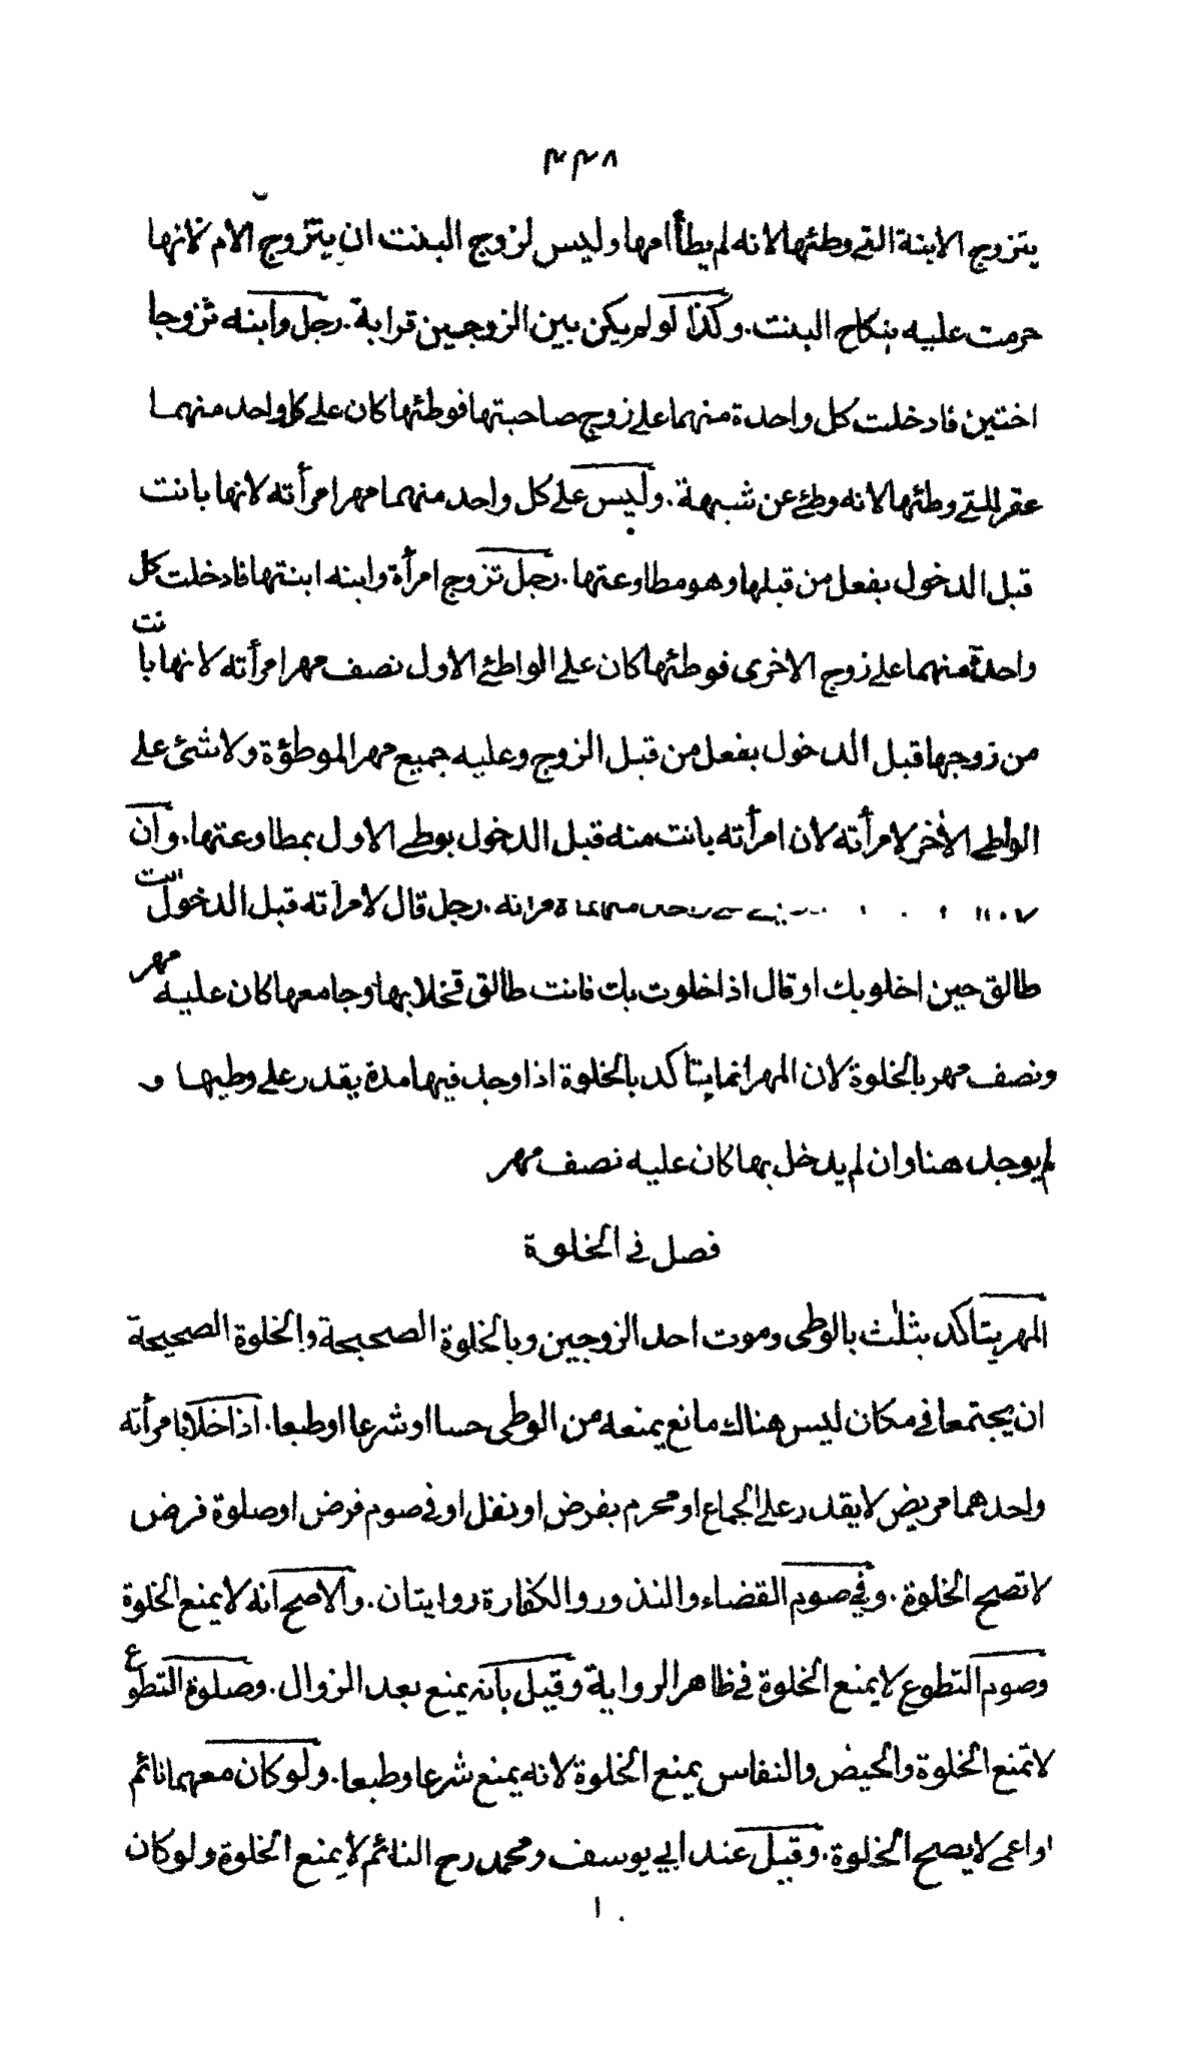 ٣٣٨
يتزوج الابنة التى وطئها لانه لم يطأ امها وليس لزوج البنت ان يتزوج الام لانها
حرمت عليه بنكاح البنت. وكذا لو لم يكن بين الزوجين قرابة. رجل وابنه تزوجا
اختين فادخلت كل واحدة منهما على زوج صاحبتها فوطئها كان على كل واحد منهما
عقر للتى وطئها لانه وطئ عن شبهة. وليس على كل واحد منهما مهر امرأته لانها بانت
قبل الدخول بفعل من قبلها وهو مطاوعتها. رجل تزوج امرأة وابنه ابنتها فادخلت كل
واحدة منهما على زوج الاخرى فوطئها كان على الواطئ الاول نصف مهر امرأته لانها بانت
من زوجها قبل الدخول بفعل من قبل الزوج وعليه جميع مهر الموطؤة ولا شئ على
الواطى الاخر لامرأته لان امرأته بانت منه قبل الدخول بوطى الاول بمطاوعتها. وان
رجل قال لامرأته قبل الدخول انت
طالق حين اخلو بك او قال اذا خلوت بك فانت طالق فخلا بها وجامعها كان عليه مهر
ونصف مهر بالخلوة لان المهر انما يتأكد بالخلوة اذا وجد فيها مدة يقدر على وطيها و
لم يوجد هنا وان لم يدخل بها كان عليه نصف مهر
فصل فى الخلوة
المهر يتاكد بثلٰث بالوطى وموت احد الزوجين وبالخلوة الصحيحة والخلوة الصحيحة
ان يجتمعا فى مكان ليس هناك مانع يمنعه من الوطى حسا او شرعا او طبعا. اذا خلا بامرأته
واحدهما مريض لا يقدر على الجماع او محرم بفرض او نفل او فى صوم فرض او صلوة فرض
لا تصح الخلوة. وفى صوم القضاء والنذور والكفارة روايتان. والاصح انه لا يمنع الخلوة
وصوم التطوع لا يمنع الخلوة فى ظاهر الرواية وقيل بأنه يمنع بعد الزوال. وصلوة التطوع
لا تمنع الخلوة والحيض والنفاس يمنع الخلوة لانه يمنع شرعا وطبعا. ولو كان معهما نائم
او اعمى لا يصح الخلوة. وقيل عند ابى يوسف ومحمد رح النائم لا يمنع الخلوة ولو كان